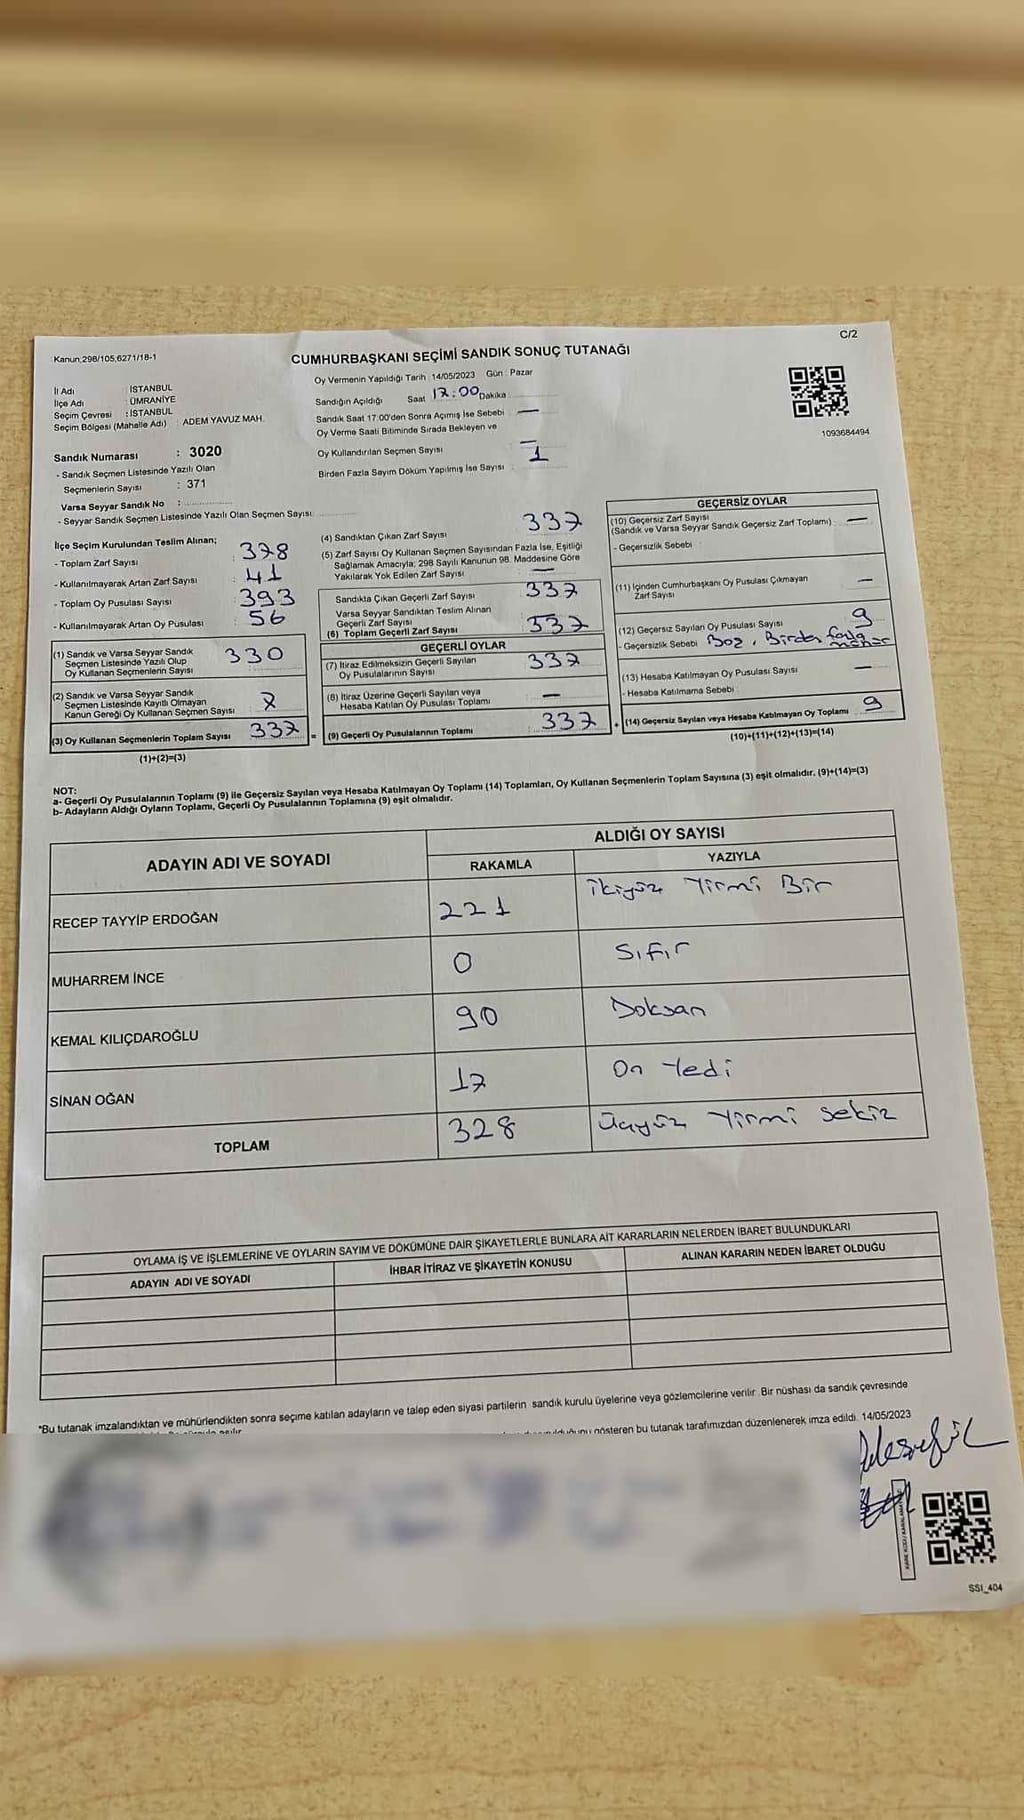 C/2
Kanun;298/105,6271/18-1
CUMHURBAŞKANI SEÇİMİ SANDIK SONUÇ TUTANAĞI
Oy Vermenin Yapıldığı Tarih :14/05/2023 Gün : Pazar
İl Adı : İSTANBUL
İlçe Adı : ÜMRANİYE
Seçim Çevresi : İSTANBUL
Seçim Bölgesi (Mahalle Adı) : ADEM YAVUZ MAH.
Sandığın Açıldığı Saat 17:00 Dakika
Sandık Saat 17:00'den Sonra Açımış İse Sebebi —
Oy Verme Saati Bitiminde Sırada Bekleyen ve
Oy Kullandırılan Seçmen Sayısı —
Birden Fazla Sayım Döküm Yapılmış İse Sayısı : 1
1093684494
Sandık Numarası : 3020
- Sandık Seçmen Listesinde Yazılı Olan
Seçmenlerin Sayısı : 371
Varsa Seyyar Sandık No :
- Seyyar Sandık Seçmen Listesinde Yazılı Olan Seçmen Sayısı:
İlçe Seçim Kurulundan Teslim Alınan;
- Toplam Zarf Sayısı : 378
- Kullanılmayarak Artan Zarf Sayısı : 41
- Toplam Oy Pusulası Sayısı : 393
- Kullanılmayarak Artan Oy Pusulası : 56
(1) Sandık ve Varsa Seyyar Sandık
Seçmen Listesinde Yazılı Olup
Oy Kullanan Seçmenlerin Sayısı 330
(2) Sandık ve Varsa Seyyar Sandık
Seçmen Listesinde Kayıtlı Olmayan
Kanun Gereği Oy Kullanan Seçmen Sayısı 7
(3) Oy Kullanan Seçmenlerin Toplam Sayısı 337
(1)+(2)=(3)
(4) Sandıktan Çıkan Zarf Sayısı 337
(5) Zarf Sayısı Oy Kullanan Seçmen Sayısından Fazla İse, Eşitliği
Sağlamak Amacıyla; 298 Sayılı Kanunun 98. Maddesine Göre
Yakılarak Yok Edilen Zarf Sayısı —
Sandıkta Çıkan Geçerli Zarf Sayısı 337
Varsa Seyyar Sandıktan Teslim Alınan
Geçerli Zarf Sayısı
(6) Toplam Geçerli Zarf Sayısı 337
GEÇERLİ OYLAR
(7) İtiraz Edilmeksizin Geçerli Sayılan
Oy Pusulalarının Sayısı 337
(8) İtiraz Üzerine Geçerli Sayılan veya
Hesaba Katılan Oy Pusulası Toplamı —
(9) Geçerli Oy Pusulalarının Toplamı 337
GEÇERSİZ OYLAR
(10) Geçersiz Zarf Sayısı
(Sandık ve Varsa Seyyar Sandık Geçersiz Zarf Toplamı) : —
- Geçersizlik Sebebi :
(11) İçinden Cumhurbaşkanı Oy Pusulası Çıkmayan
Zarf Sayısı —
(12) Geçersiz Sayılan Oy Pusulası Sayısı 9
- Geçersizlik Sebebi Boş, Birden fazla mühür
(13) Hesaba Katılmayan Oy Pusulası Sayısı —
- Hesaba Katılmama Sebebi :
(14) Geçersiz Sayılan veya Hesaba Katılmayan Oy Toplamı 9
(10)+(11)+(12)+(13)=(14)
NOT:
a- Geçerli Oy Pusulalarının Toplamı (9) ile Geçersiz Sayılan veya Hesaba Katılmayan Oy Toplamı (14) Toplamları, Oy Kullanan Seçmenlerin Toplam Sayısına (3) eşit olmalıdır. (9)+(14)=(3)
b- Adayların Aldığı Oyların Toplamı, Geçerli Oy Pusulalarının Toplamına (9) eşit olmalıdır.
ADAYIN ADI VE SOYADI ALDIĞI OY SAYISI
RAKAMLA YAZIYLA
RECEP TAYYİP ERDOĞAN 221 ikiyüz Yirmi Bir
MUHARREM İNCE 0 Sıfır
KEMAL KILIÇDAROĞLU 90 Doksan
SİNAN OĞAN 17 On Yedi
TOPLAM 328 Üçyüz Yirmi Sekiz
OYLAMA İŞ VE İŞLEMLERİNE VE OYLARIN SAYIM VE DÖKÜMÜNE DAİR ŞİKAYETLERLE BUNLARA AİT KARARLARIN NELERDEN İBARET BULUNDUKLARI
ADAYIN ADI VE SOYADI İHBAR İTİRAZ VE ŞİKAYETİN KONUSU ALINAN KARARIN NEDEN İBARET OLDUĞU
*Bu tutanak imzalandıktan ve mühürlendikten sonra seçime katılan adayların ve talep eden siyasi partilerin sandık kurulu üyelerine veya gözlemcilerine verilir. Bir nüshası da sandık çevresinde
gösteren bu tutanak tarafımızdan düzenlenerek imza edildi. 14/05/2023
SSI_404